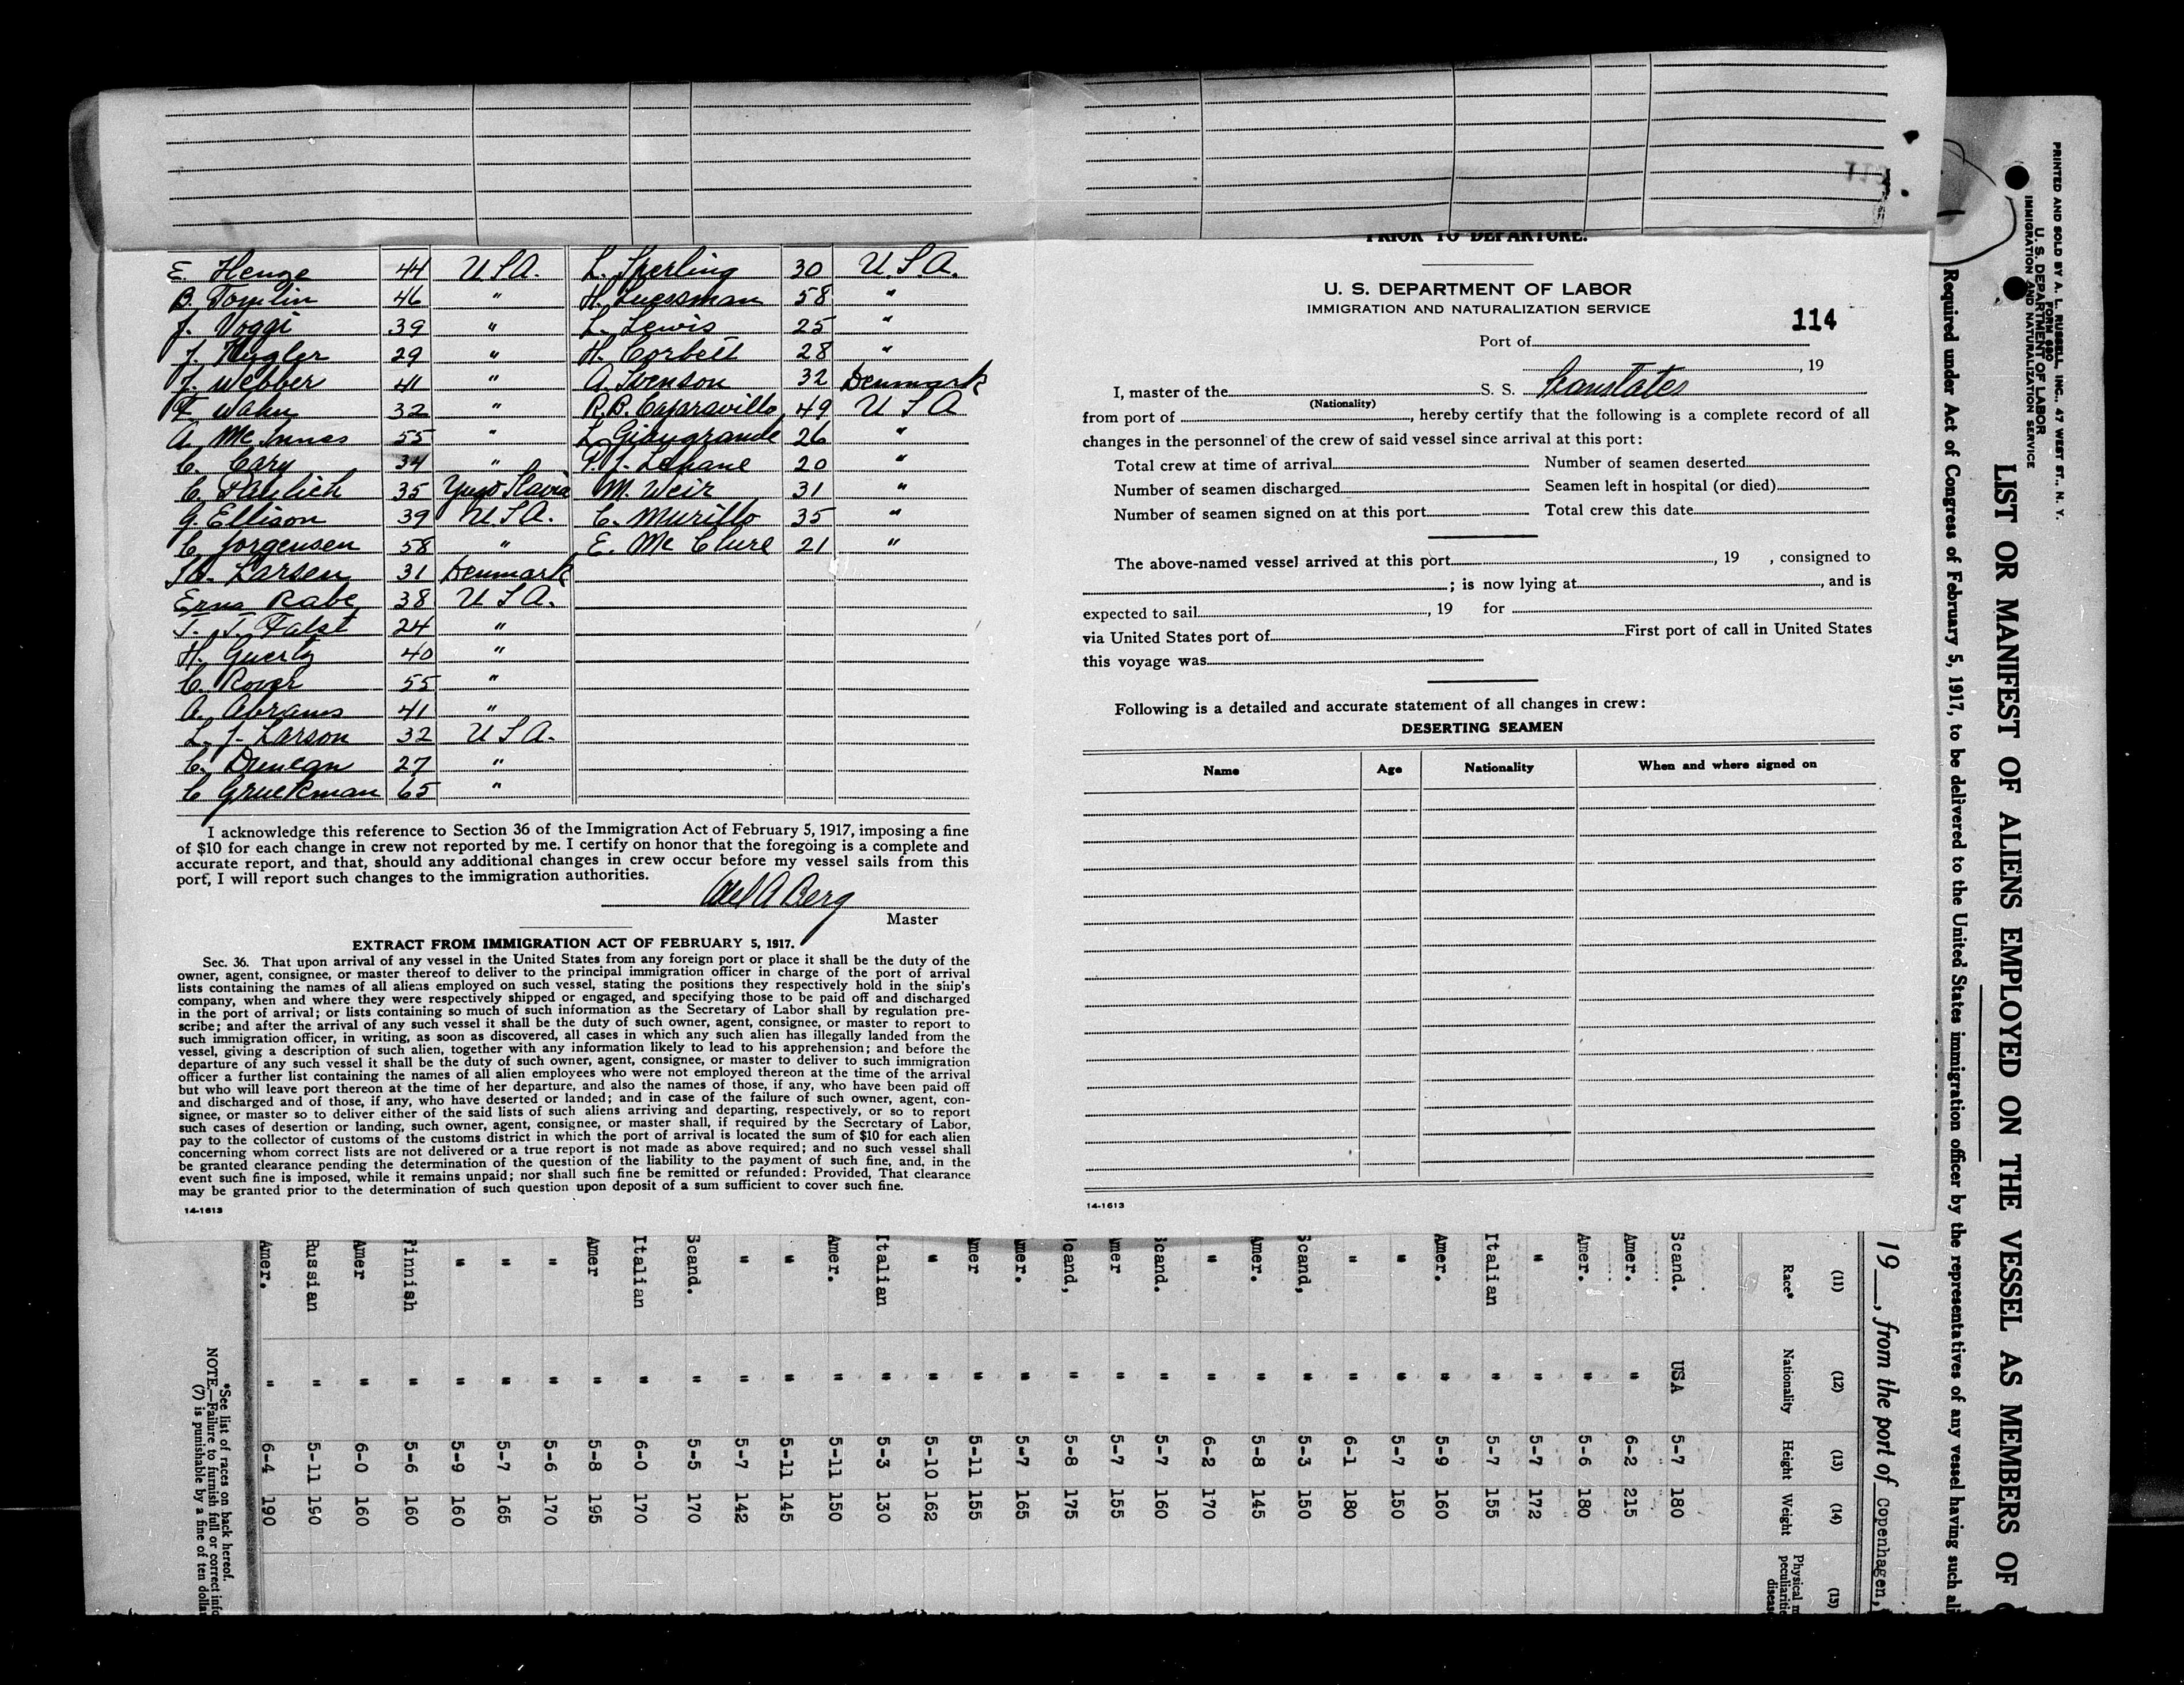 E. Henge 44 U S A. L. Sperling 30 U.S.A.
B. Tomlin 46 " H. Luessman 58 "
J. Voggi 39 " L. Lewis 25 "
J. Kugler 29 " H. Corbett 28 "
J. Webber 41 " A. Svenson 32 Denmark
F. Wahn 32 " R.B. 49 U S A
A. McInnes 55 " L. Giangrande 26 "
C. Cary 34 " P. J. Lehane 20 "
C. Paulich 35 Yugo Slavia M. Weir 31 "
G. Ellison 39 U S A. C. Murillo 35 "
C. Jorgensen 58 " E. McClure 21 "
Larsen 31 Denmark
Erna Rabe 38 U S A.
T. J. Falst 24 "
H. Guertz 40 "
C. 55 "
A. Abrams 41 "
L. J. Larson 32 U S A.
C. Duncan 27 "
C Grueckman 65 "
I acknowledge this reference to Section 36 of the Immigration Act of February 5, 1917, imposing a fine
of $10 for each change in crew not reported by me. I certify on honor that the foregoing is a complete and
accurate report, and that, should any additional changes in crew occur before my vessel sails from this
port, I will report such changes to the immigration authorities.
A Berg
Master
EXTRACT FROM IMMIGRATION ACT OF FEBRUARY 5, 1917.
Sec. 36. That upon arrival of any vessel in the United States from any foreign port or place it shall be the duty of the
owner, agent, consignee, or master thereof to deliver to the principal immigration officer in charge of the port of arrival
lists containing the names of all aliens employed on such vessel, stating the positions they respectively hold in the ship's
company, when and where they were respectively shipped or engaged, and specifying those to be paid off and discharged
in the port of arrival; or lists containing so much of such information as the Secretary of Labor shall by regulation pre-
scribe; and after the arrival of any such vessel it shall be the duty of such owner, agent, consignee, or master to report to
such immigration officer, in writing, as soon as discovered, all cases in which any such alien has illegally landed from the
vessel, giving a description of such alien, together with any information likely to lead to his apprehension; and before the
departure of any such vessel it shall be the duty of such owner, agent, consignee, or master to deliver to such immigration
officer a further list containing the names of all alien employees who were not employed thereon at the time of the arrival
but who will leave port thereon at the time of her departure, and also the names of those, if any, who have been paid off
and discharged and of those, if any, who have deserted or landed; and in case of the failure of such owner, agent, con-
signee, or master so to deliver either of the said lists of such aliens arriving and departing, respectively, or so to report
such cases of desertion or landing, such owner, agent, consignee, or master shall, if required by the Secretary of Labor,
pay to the collector of customs of the customs district in which the port of arrival is located the sum of $10 for each alien
concerning whom correct lists are not delivered or a true report is not made as above required; and no such vessel shall
be granted clearance pending the determination of the question of the liability to the payment of such fine, and, in the
event such fine is imposed, while it remains unpaid; nor shall such fine be remitted or refunded: Provided, That clearance
may be granted prior to the determination of such question upon deposit of a sum sufficient to cover such fine.
14-1613
PRIOR TO DEPARTURE.
U. S. DEPARTMENT OF LABOR
IMMIGRATION AND NATURALIZATION SERVICE
114
Port of
, 19
I, master of the S. S. Scanstates
(Nationality)
from port of , hereby certify that the following is a complete record of all
changes in the personnel of the crew of said vessel since arrival at this port:
Total crew at time of arrival Number of seamen deserted
Number of seamen discharged Seamen left in hospital (or died)
Number of seamen signed on at this port Total crew this date
The above-named vessel arrived at this port , 19 , consigned to
; is now lying at , and is
expected to sail , 19 for
via United States port of First port of call in United States
this voyage was
Following is a detailed and accurate statement of all changes in crew:
DESERTING SEAMEN
Name Age Nationality When and where signed on
14-1613
PRINTED AND SOLD BY A. L. RUSSELL, INC., 47 WEST ST., N. Y.
FORM 680
U. S. DEPARTMENT OF LABOR
IMMIGRATION AND NATURALIZATION SERVICE
LIST OR MANIFEST OF ALIENS EMPLOYED ON THE VESSEL AS MEMBERS OF
Required under Act of Congress of February 5, 1917, to be delivered to the United States immigration officer by the representatives of any vessel having such
19 , from the port of Copenhagen,
(11) (12) (13) (14) (15)
Race* Nationality Height Weight Physical
Scand. USA 5-7 180
Amer. " 6-2 215
Amer. " 5-6 180
" " 5-7 172
Italian " 5-7 155
Amer. " 5-9 160
" " 5-7 150
" " 6-1 180
Scand, " 5-3 150
Amer. " 5-8 145
" " 6-2 170
Scand. " 5-7 160
Amer " 5-7 155
Scand, " 5-8 175
Amer. " 5-7 165
Amer " 5-11 155
" " 5-10 162
Italian " 5-3 130
Amer. " 5-11 150
" " 5-11 145
" " 5-7 142
Scand. " 5-5 170
Italian " 6-0 170
Amer " 5-8 195
" " 5-6 170
" " 5-7 165
" " 5-9 160
Finnish " 5-6 160
Amer " 6-0 160
Russian " 5-11 190
Amer. " 6-4 190
*See list of races on back hereof.
NOTE.—Failure to furnish full or correct
(7) is punishable by a fine of ten